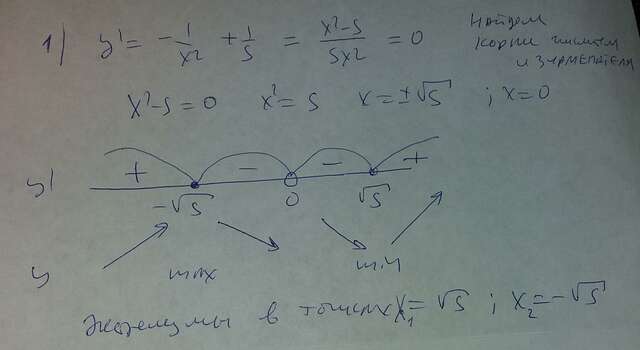 1) y' = -1/x² + 1/5 = (x²-5)/(5x²) = 0 Найдем корни числит и знаменателя
x²-5=0 x²=5 x=±√5 ; x=0
y' + - - +
-√5 0 √5
y max min
Экстремумы в точках x₁=√5 ; x₂=-√5